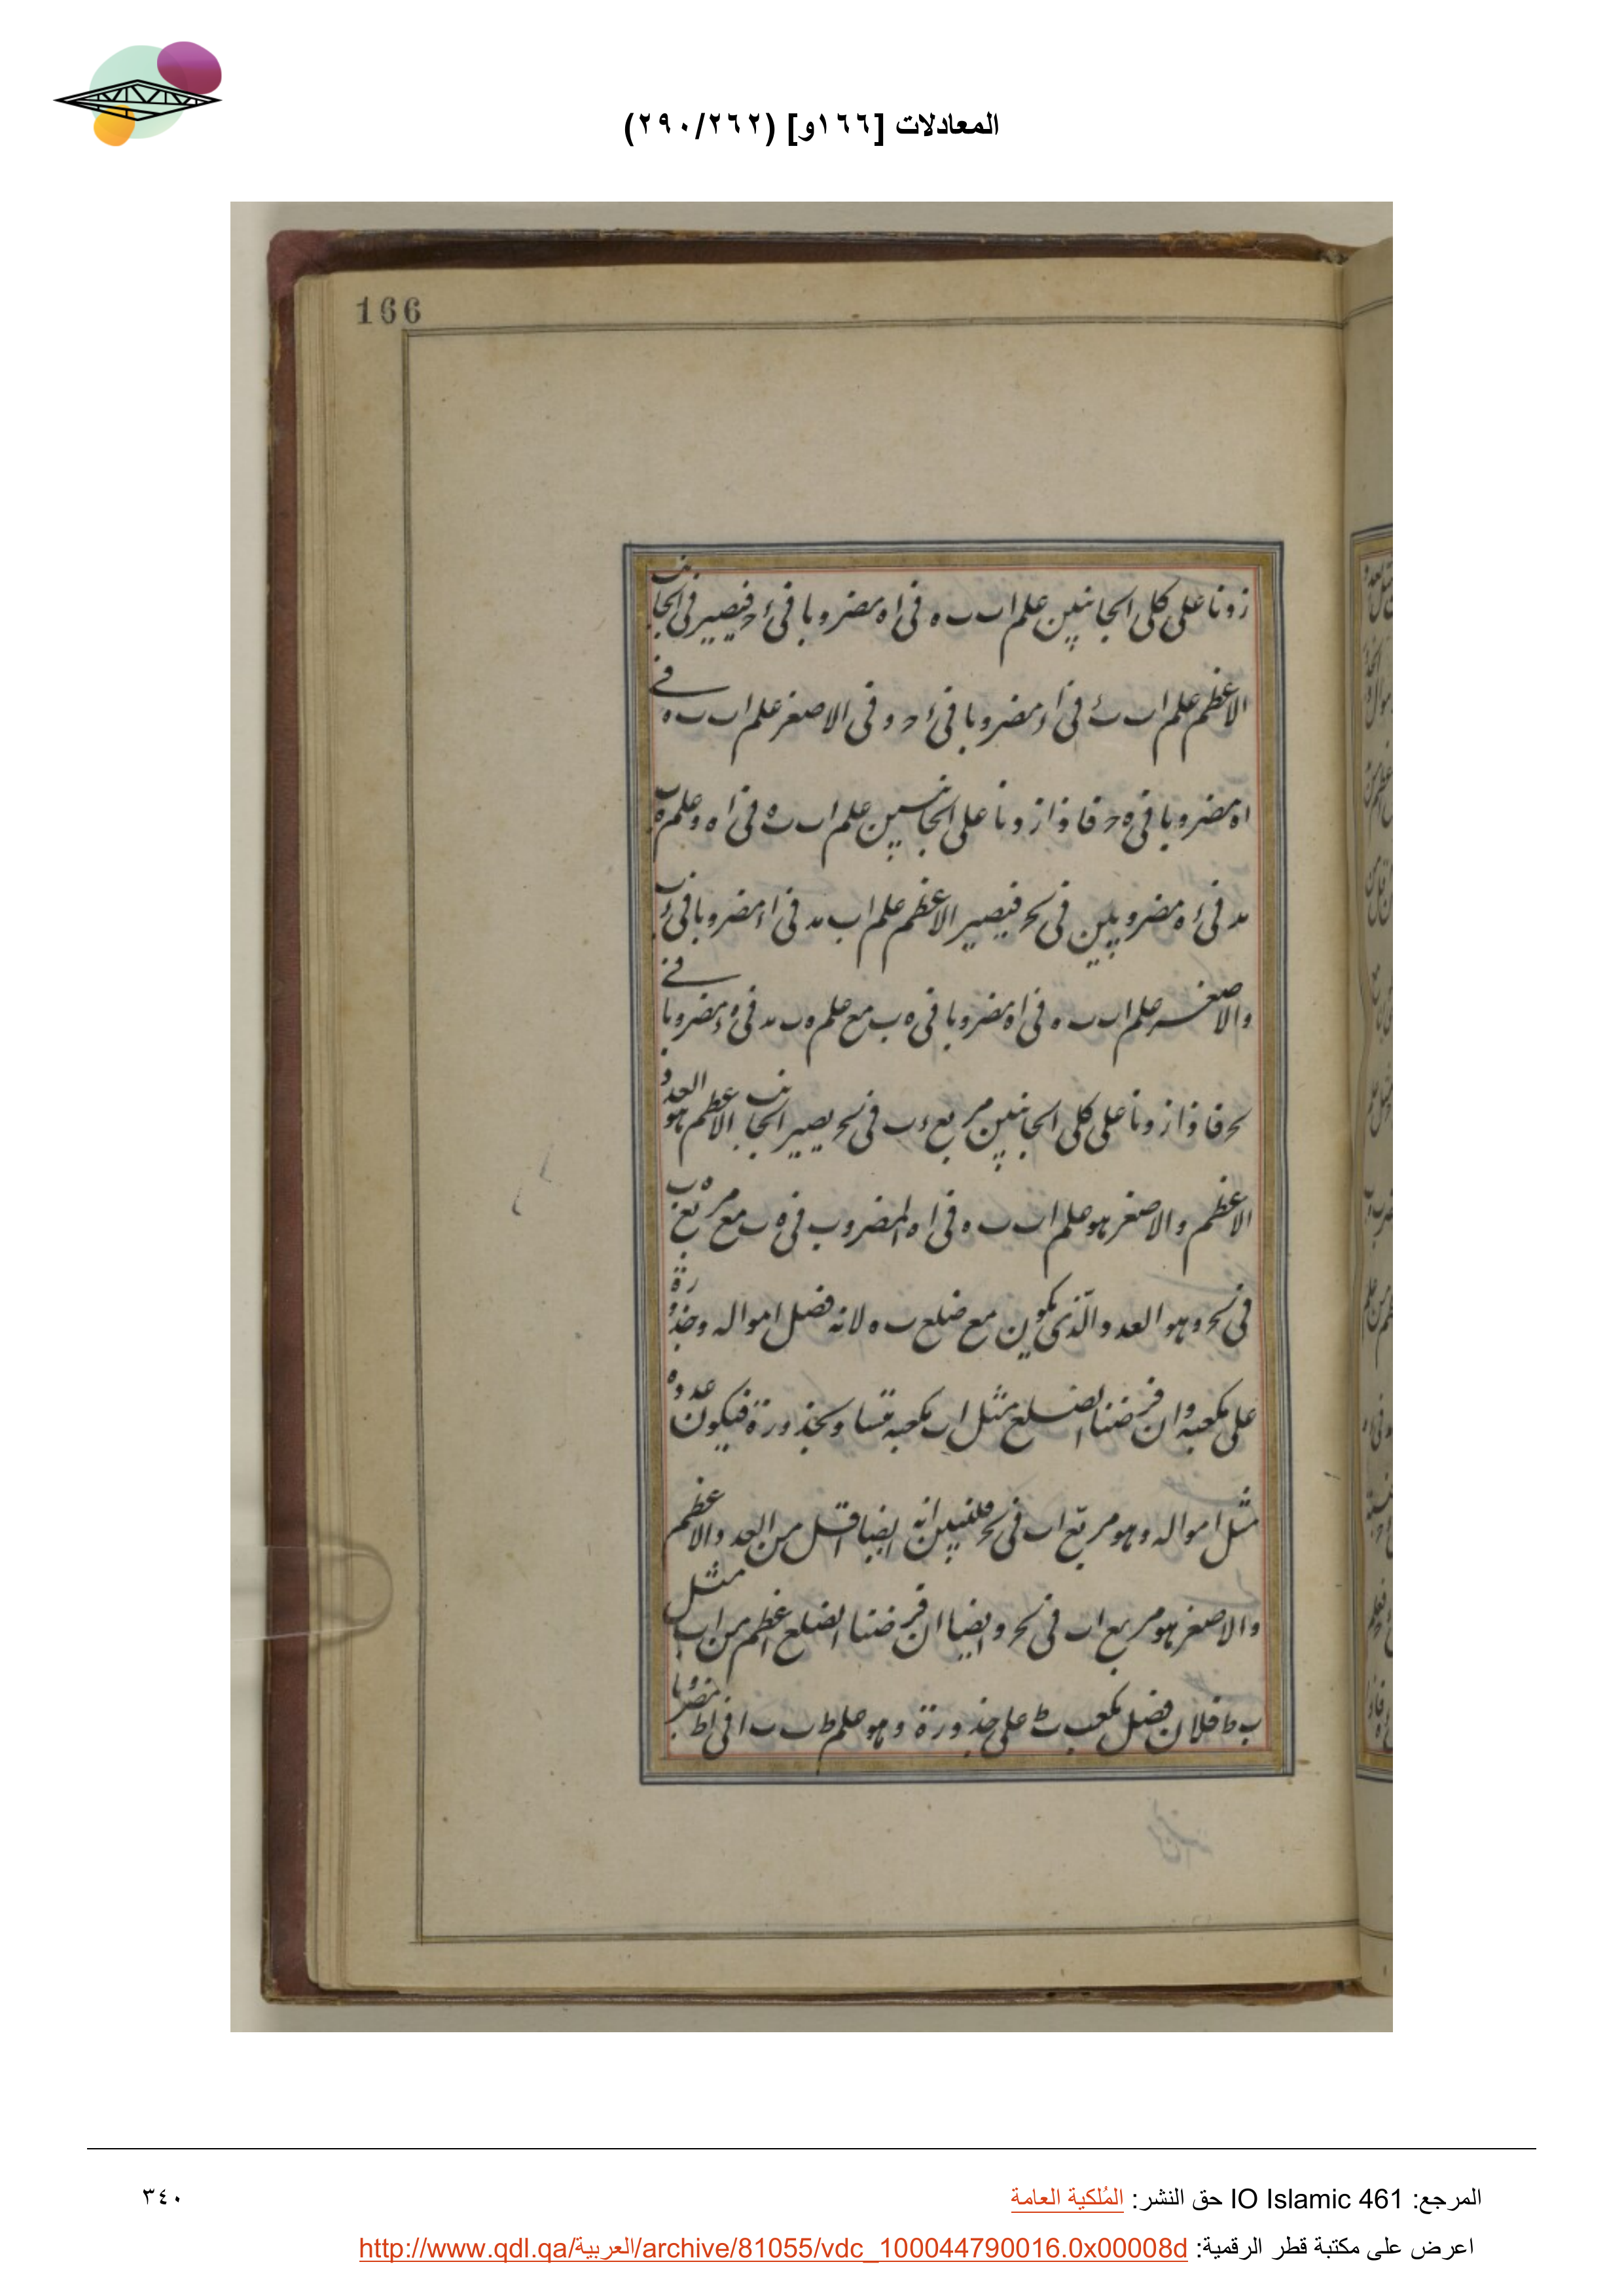 المعادلات [١٦٦و] (٢٩٠/٢٦٢)
166
زدنا على كلى الجانبين علم اب ب ه فى اه مضروبا فى ء ح فيصير فى الجانب
الاعظم علم اب ب ء فى اء مضروبا فى ء ح و فى الاصغر علم اب ب ه فى
اه مضروبا فى ه ح فاذا زدنا على الجانبين علم اب ب ه فى اه وعلم ه ب
ب د فى ء ه مضروبين فى نح فيصير الاعظم علم اب ب د فى اء مضروبا فى ء ب
والاصغر علم اب ب ه فى اه مضروبا فى ه ب مع علم ه ب ب د فى ه ء مضروبا فى
نح فاذا زدنا على كلى الجانبين مربع ء ب فى نح يصير الجانب الاعظم هو العدد
الاعظم والاصغر هو علم اب ب ه فى اه المضروب فى ه ب مع مربع ه ب
فى نح وهو العدد الذى يكون مع ضلع ب ه لانه فضل امواله وجذوره
على مكعبه وان فرضنا الضلع مثل اب مكعبه تساوى جذورة فيكون عدده
مثل امواله وهو مربع اب فى نح فلنبين انه ايضا اقل من العدد الاعظم
والاصغر هو مربع اب فى نح وايضا ان فرضنا الضلع اعظم من اب مثل
ب ط فلان فضل مكعب ب ط على جذورة وهو علم ط ب ب ا فى اط مضروبا
المرجع: IO Islamic 461 حق النشر: المُلكية العامة
٣٤٠
اعرض على مكتبة قطر الرقمية: http://www.qdl.qa/العربية/archive/81055/vdc_100044790016.0x00008d